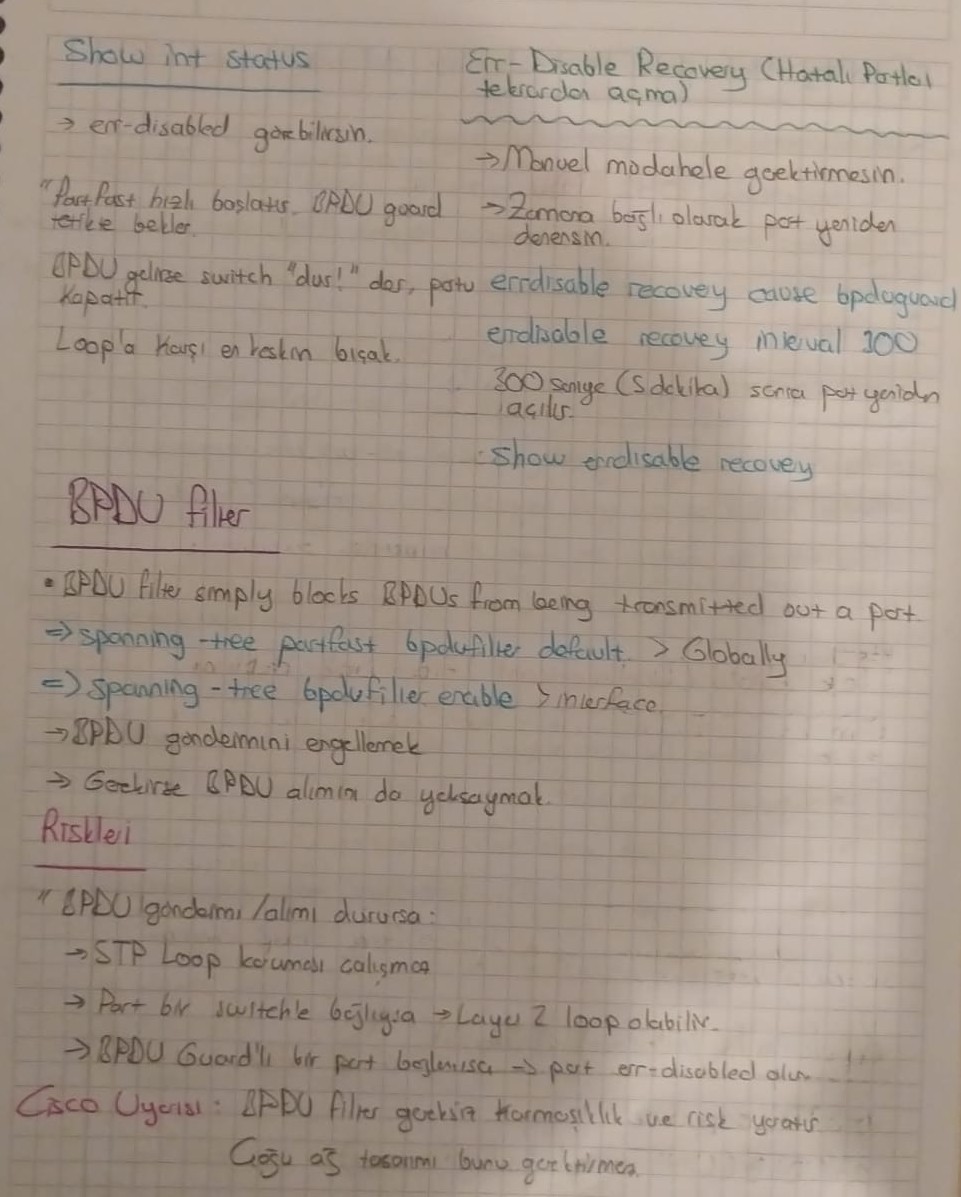 Show int status
→ err-disabled görebilirsin.
"PortFast hızlı başlatır. BPDU guard
tetikte bekler.
BPDU gelirse switch "dur!" der, portu
kapatır.
Loop'a karşı en keskin bıçak.
Err-Disable Recovery (Hatalı Portları
tekrardan açma)
→ Manuel müdahele gerektirmesin.
→ Zamana bağlı olarak port yeniden
denensin.
errdisable recovey cause bpduguard
errdisable recovey interval 300
300 saniye (5 dakika) sonra port yeniden
açılır.
show errdisable recovey
BPDU filter
• BPDU filter simply blocks BPDUs from being transmitted out a port
⇒ spanning-tree portfast bpdufilter default > Globally
⇒ spanning-tree bpdufilter enable > interface
→ BPDU gönderimini engellemek
→ Gerekirse BPDU alımını da yoksaymak.
Riskleri
" BPDU gönderimi/alımı durursa:
→ STP Loop koruması çalışmaz
→ Port bir switchle bağlıysa → Layer 2 loop olabilir.
→ BPDU Guard'lı bir port bağlanırsa → port err-disabled olur
Cisco Uyarısı: BPDU filter gereksiz karmaşıklık ve risk yaratır
Çoğu ağ tasarımı bunu gerektirmez.